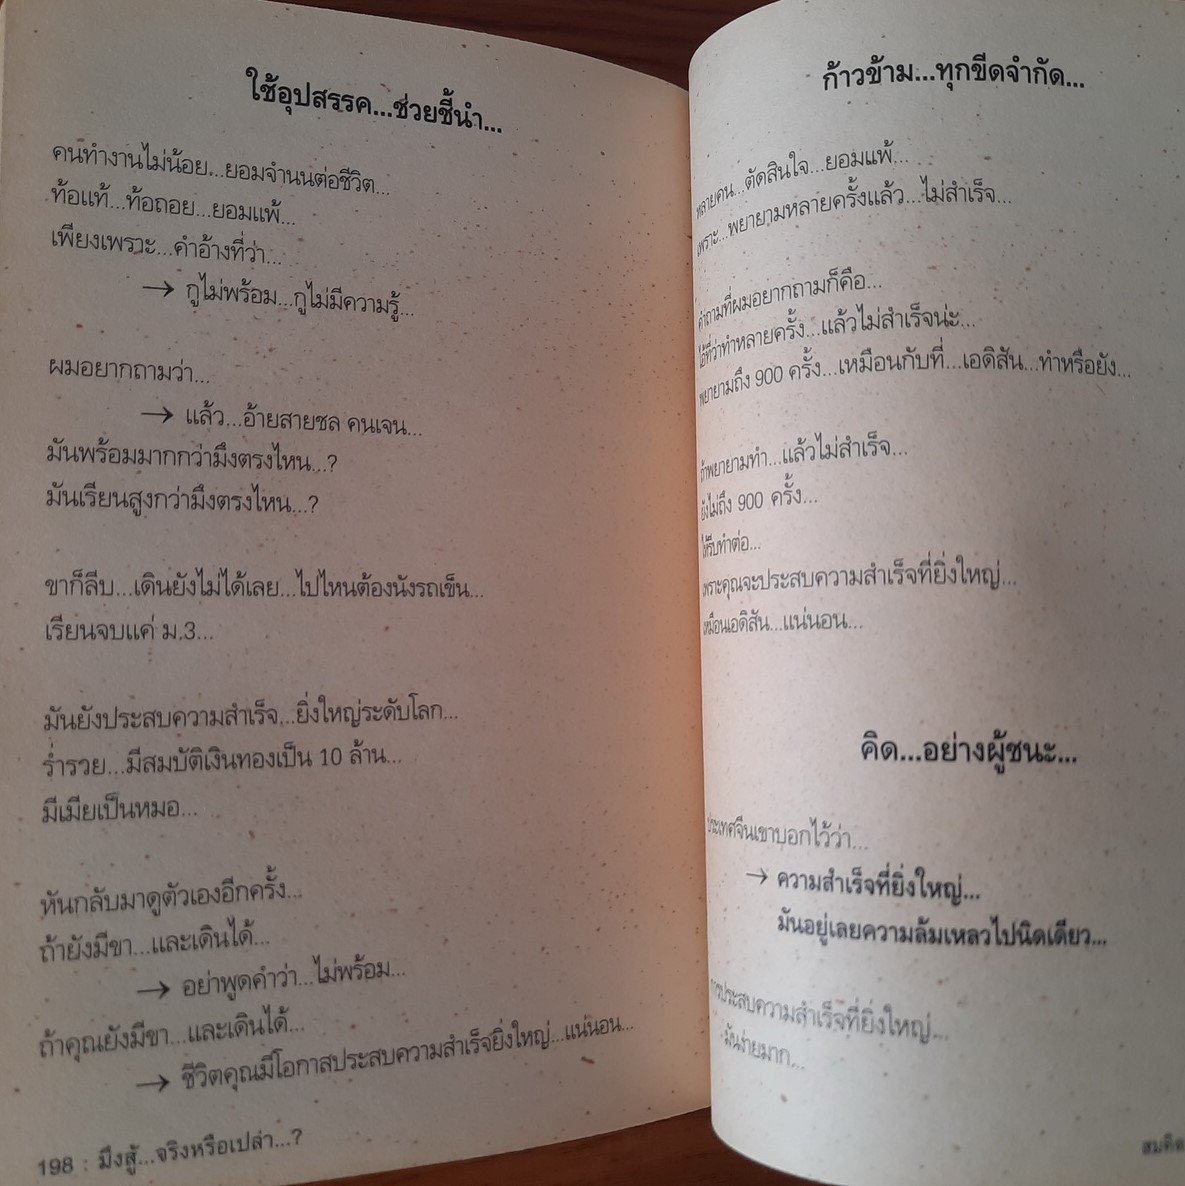 ใช้อุปสรรค...ช่วยชี้นำ...
คนทำงานไม่น้อย...ยอมจำนนต่อชีวิต...
ท้อแท้...ท้อถอย...ยอมแพ้...
เพียงเพราะ...คำอ้างที่ว่า...
→ กูไม่พร้อม...กูไม่มีความรู้...
ผมอยากถามว่า...
→ แล้ว...อ้ายสายชล คนเจน...
มันพร้อมมากกว่ามึงตรงไหน...?
มันเรียนสูงกว่ามึงตรงไหน...?
ขาก็ลีบ...เดินยังไม่ได้เลย...ไปไหนต้องนั่งรถเข็น...
เรียนจบแค่ ม.3...
มันยังประสบความสำเร็จ...ยิ่งใหญ่ระดับโลก...
ร่ำรวย...มีสมบัติเงินทองเป็น 10 ล้าน...
มีเมียเป็นหมอ...
หันกลับมาดูตัวเองอีกครั้ง...
ถ้ายังมีขา...และเดินได้...
→ อย่าพูดคำว่า...ไม่พร้อม...
ถ้าคุณยังมีขา...และเดินได้...
→ ชีวิตคุณมีโอกาสประสบความสำเร็จยิ่งใหญ่...แน่นอน...
198 : มึงสู้...จริงหรือเปล่า...?
ก้าวข้าม...ทุกขีดจำกัด...
หลายคน...ตัดสินใจ...ยอมแพ้...
เพราะ...พยายามหลายครั้งแล้ว...ไม่สำเร็จ...
คำถามที่ผมอยากถามก็คือ...
ไอ้ที่ว่าทำหลายครั้ง...แล้วไม่สำเร็จน่ะ...
พยายามถึง 900 ครั้ง...เหมือนกับที่...เอดิสัน...ทำหรือยัง...
ถ้าพยายามทำ...แล้วไม่สำเร็จ...
ยังไม่ถึง 900 ครั้ง...
ให้รีบทำต่อ...
เพราะคุณจะประสบความสำเร็จที่ยิ่งใหญ่...
เหมือนเอดิสัน...แน่นอน...
คิด...อย่างผู้ชนะ...
ประเทศจีนเขาบอกไว้ว่า...
→ ความสำเร็จที่ยิ่งใหญ่...
มันอยู่เลยความล้มเหลวไปนิดเดียว...
การประสบความสำเร็จที่ยิ่งใหญ่...
...มันง่ายมาก...
สมคิด